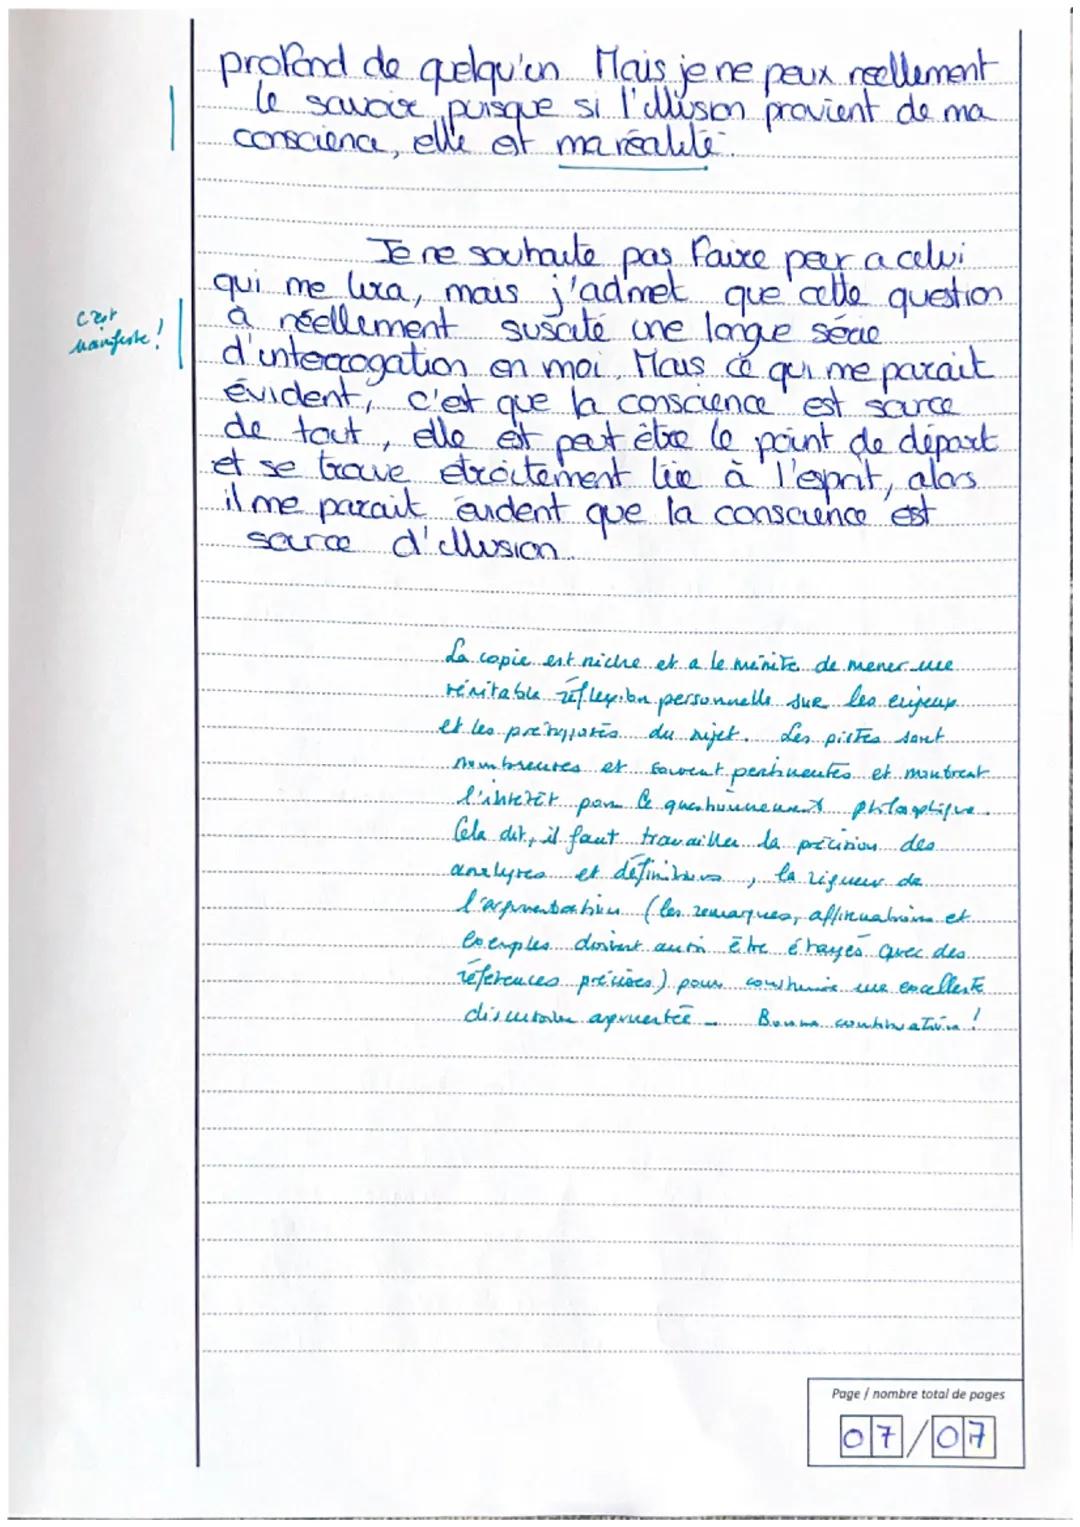 profond de quelqu'un Mais je ne peux reellement
le savoir, puisque si l'illusion provient de ma
conscience, elle est ma réalité.
Je ne souhaite pas faire peur a celui
qui me lira, mais j'admet que cette question
à réellement suscité une longue série
d'interrogation en moi. Mais ce qui me parait
évident, c'est que la conscience est source
de tout, elle est peut être le point de départ
et se trouve etroitement liée à l'esprit, alors
il me parait évident que la conscience est
source d'illusion.
c'est
manifeste !
La copie est riche et a le mérite de mener une
véritable réflexion personnelle sur les enjeux
et les présupposés du sujet. Les pistes sont
nombreuses et souvent pertinentes et montrent
l'intérêt pour le questionnement philosophique.
Cela dit, il faut travailler la précision des
analyses et définitions, la rigueur de
l'argumentation (les remarques, affirmations et
exemples doivent aussi être étayés avec des
références précises) pour construire une excellente
discussion argumentée. Bonne continuation !
Page / nombre total de pages
07/07